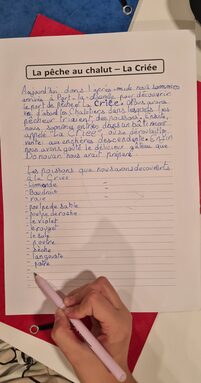 La pêche au chalut – La Criée
Aujourd'hui dans l'après-midi nous sommes
arrivés à Port-la- pour découvrir
le port de pêche La Criée. Nous avons
d'abord les chalutiers dans lesquels les
pêcheurs des poissons. Ensuite,
nous sommes entrés dans un bâtiment
appelé "La Criée", où se déroulait la
vente aux enchères descendante. Enfin
nous avons goûté le délicieux gâteau que
Donovan nous avait préparé.
Les poissons que nous avons découverts
à la Criée
- limande -
- Baudroit -
- raie -
- poulpe de sable
- poulpe de roche
- le violet
- brouget
- le loup
- poulpe
- sèche
- langouste
- palre
-
-